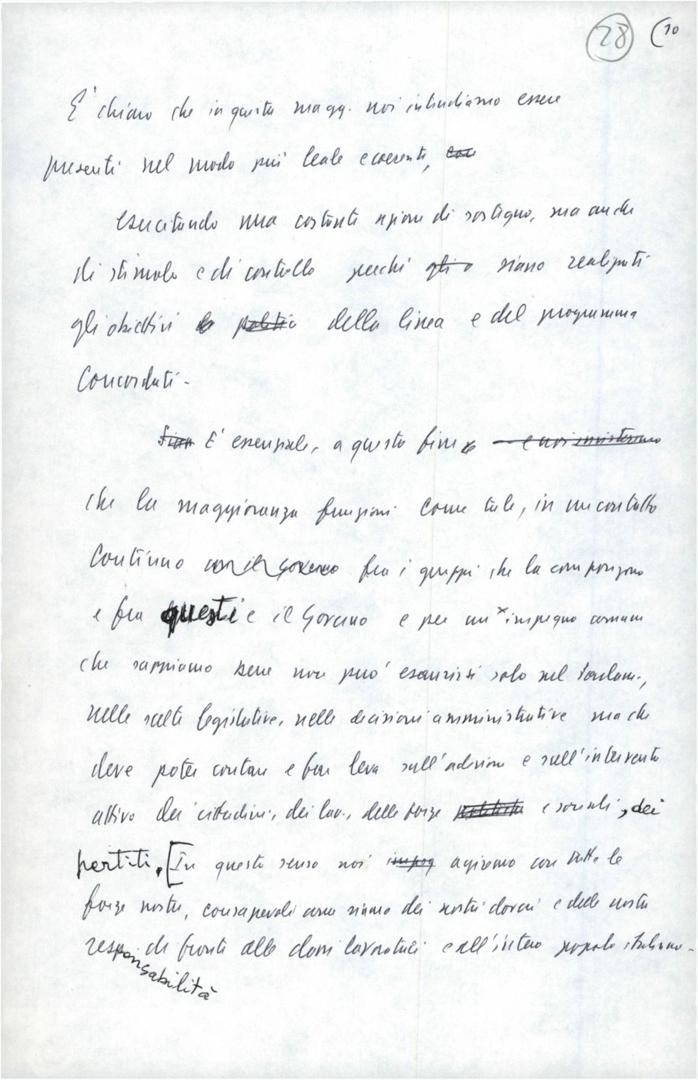 28 (10
E' chiaro che in questa magg. noi intendiamo essere
presenti nel modo più leale e coerente, con
esercitando una costante azione di sostegno, ma anche
di stimolo e di controllo perché gli siano realizzati
gli obiettivi politic della linea e del programma
concordati -
E' essenziale, a questo fine e noi insisteremo
che la maggioranza funzioni come tale, in un contatto
continuo con il governo fra i gruppi che la compongono
e fra questi e il Governo e per un x impegno comune
che sappiamo bene non può esaurirsi solo nel Parlam.,
nelle scelte legislative, nelle decisioni amministrative ma che
deve poter contare e far leva sull'adesione e sull'intervento
attivo dei cittadini, dei lav., delle forze e sociali, dei
partiti. [In questo senso noi impeg agiremo con tutte le
forze nostre, consapevoli come siamo dei nostri doveri e delle nostre
responsabilità di fronte alle classi lavoratrici e all'intero popolo italiano -